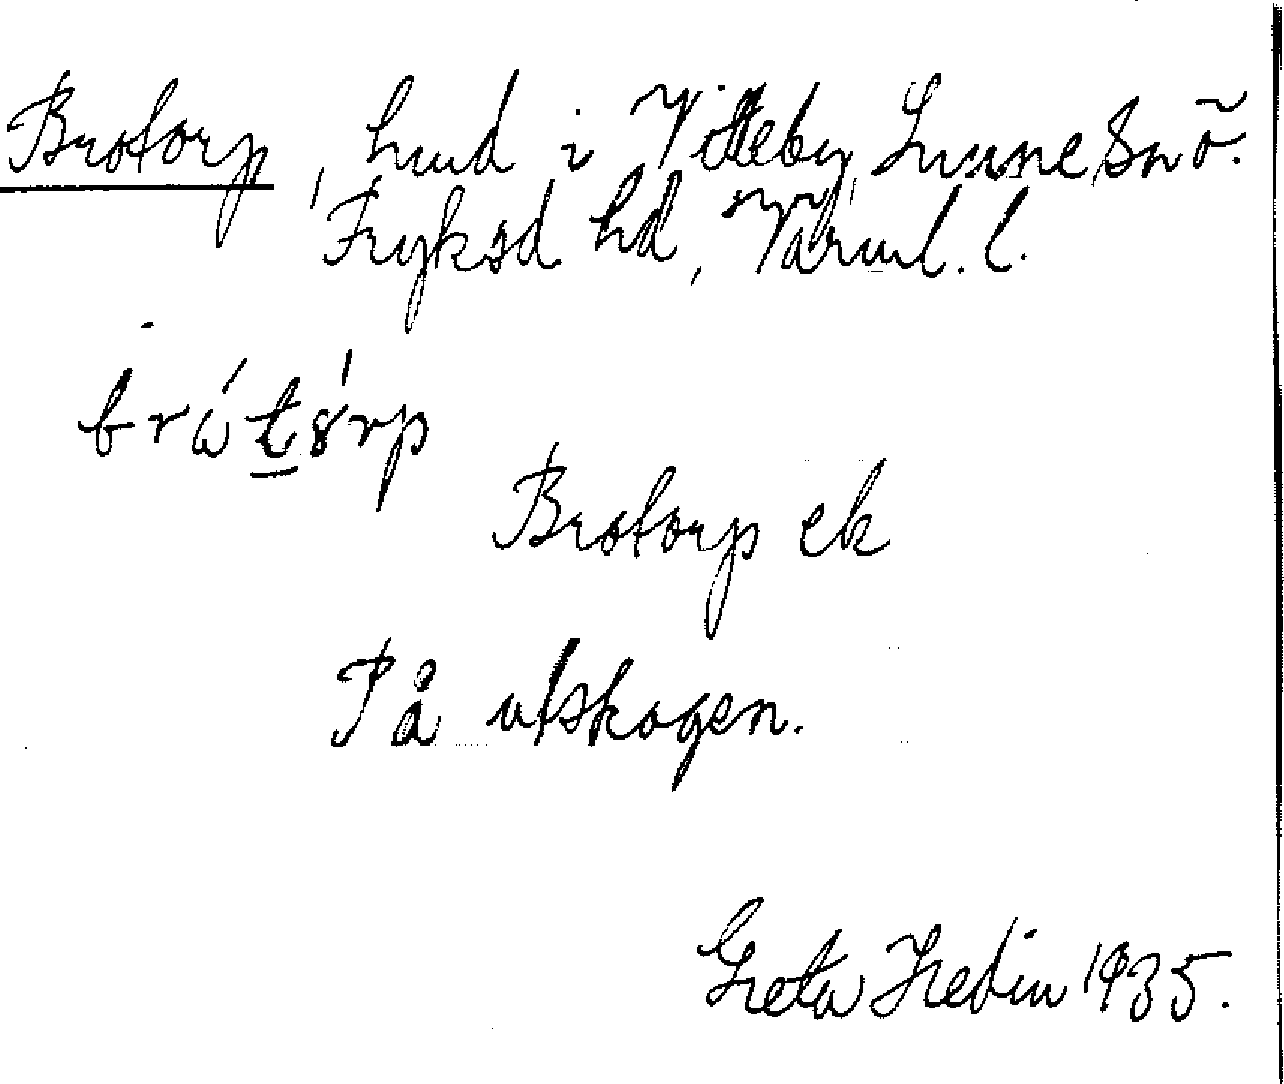 Brotorp, hmd i Vitteby, Lunne sn ö.
Fryksd hd, Värml. l.
Brotorp ek
På utskogen.
Greta Hedin 1935.